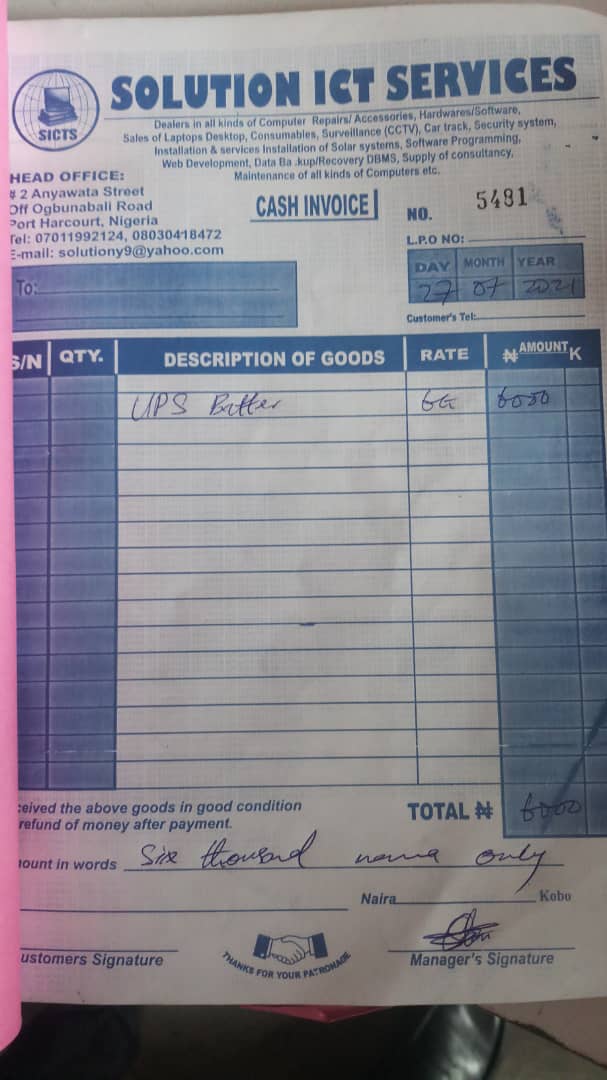 SOLUTION ICT SERVICES
SICTS
Dealers in all kinds of Computer Repairs/ Accessories, Hardwares/Software,
Sales of Laptops Desktop, Consumables, Surveillance (CCTV), Car track, Security system,
Installation & services Installation of Solar systems, Software Programming,
Web Development, Data Ba .kup/Recovery DBMS, Supply of consultancy,
Maintenance of all kinds of Computers etc.
HEAD OFFICE:
# 2 Anyawata Street
Off Ogbunabali Road
Port Harcourt, Nigeria
Tel: 07011992124, 08030418472
E-mail: solutiony9@yahoo.com
CASH INVOICE
NO. 5491
L.P.O NO:
DAY MONTH YEAR
27 07 2021
To:
Customer's Tel:
S/N QTY. DESCRIPTION OF GOODS RATE ₦ AMOUNT K
UPS Batter 6000
ceived the above goods in good condition
refund of money after payment.
TOTAL ₦ 6000
ount in words Six thousand naira only
Naira Kobo
ustomers Signature
THANKS FOR YOUR PATRONAGE
Manager's Signature